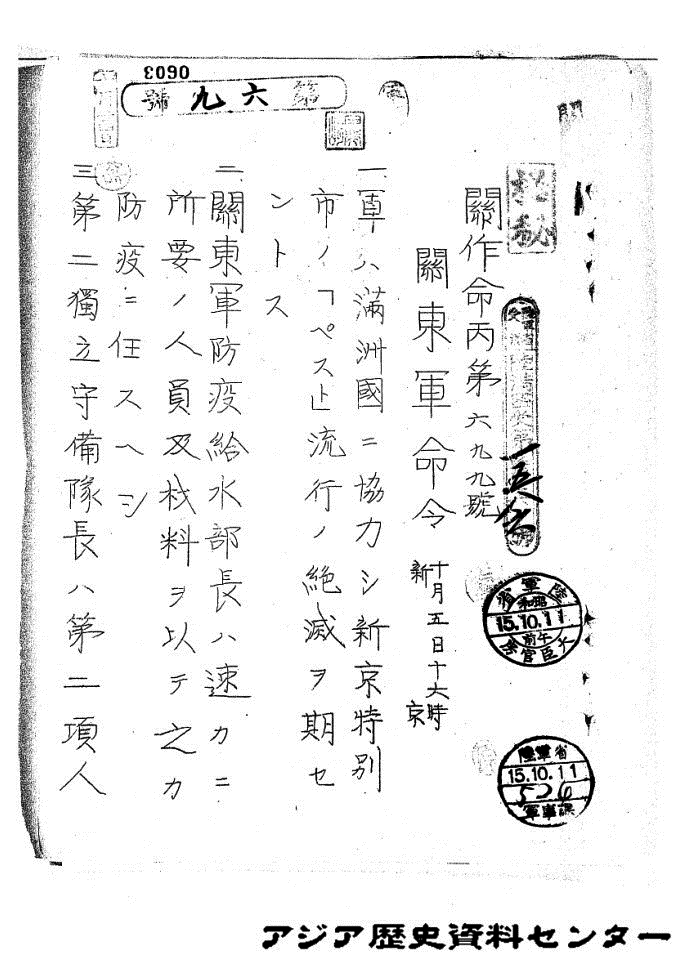 0603
第六九號
極秘
關作命丙第六九九號
關東軍命令
十月五日十六時
新京
一軍ハ滿洲國ニ協力シ新京特別
市ノ「ペスト」流行ノ絶滅ヲ期セ
ントス
二關東軍防疫給水部長ハ速カニ
所要ノ人員及材料ヲ以テ之カ
防疫ニ任スヘシ
三第二獨立守備隊長ハ第二項人
陸軍省
昭和
15.10.11
午前
大臣官房
陸軍省
15.10.11
軍事課
アジア歴史資料センター